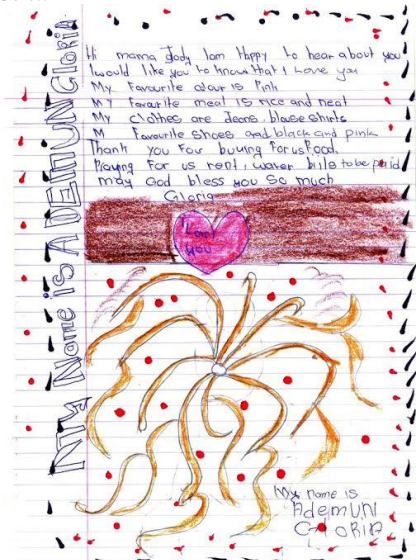 Hi mama Jody Iam Happy to hear about you
I would like you to know that I Love you
My Favourite colour is Pink
MY Favourite meal is rice and meat
My clothes are Jeans, blouse shirts
M Favourite shoes and black and pink
Thank you For buying For us Food,
Playing For us rent, water bills to be paid
may God bless you So much
Gloria
I Love
you
My name is
Ademun
GLORIA
My Name is ADEMUN GloRia